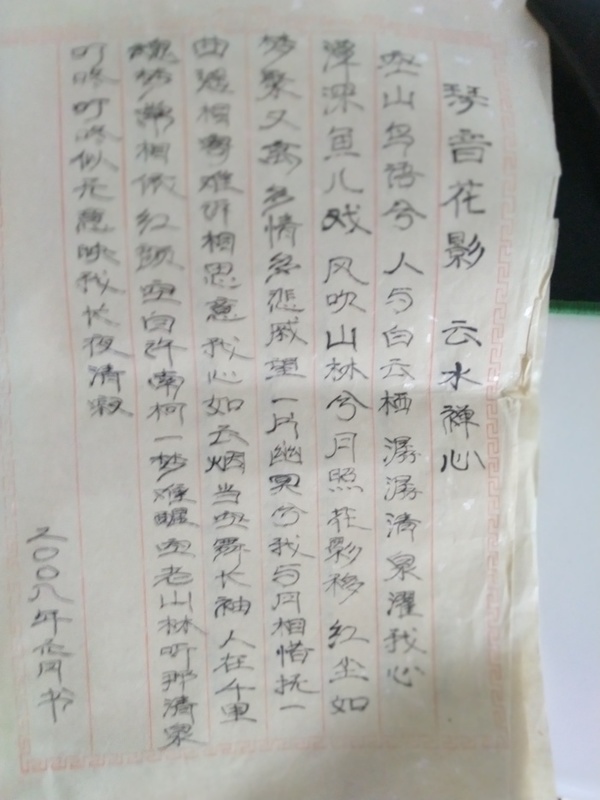 琴音花影 云水禅心
空山鸟语兮 人与白云栖 潺潺清泉濯我心
潭深鱼儿戏 风吹山林兮 月照花影移 红尘如
梦聚又离 多情多悲戚 望一片幽冥兮 我与月相惜 抚一
曲遥相寄 难诉相思意 我心如云烟 当空舞长袖 人在千里
魂梦常相依 红颜空自许 南柯一梦难醒 空老山林 听那清泉
叮咚叮咚似无意 映我长夜清寂
2008年 月书